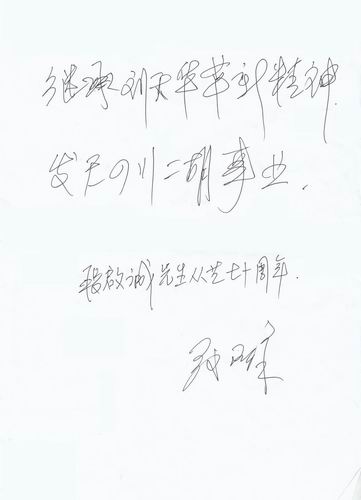 继承刘天华革新精神
发展四川二胡事业.
段启诚先生从艺七十周年.